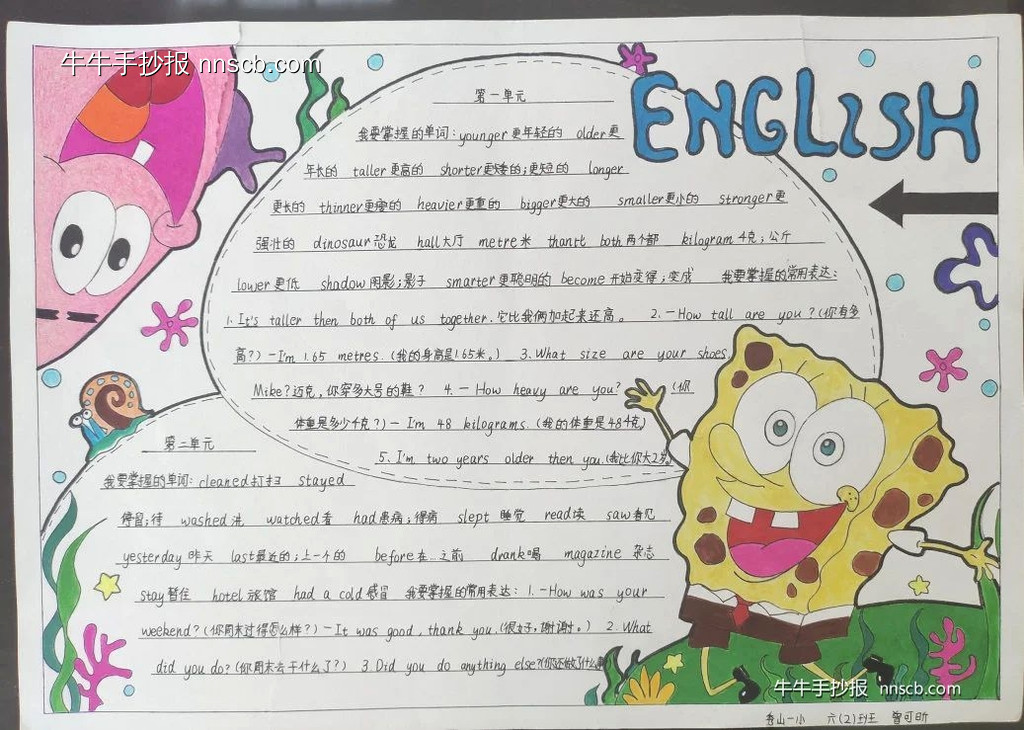 牛牛手抄报 nnscb.com
ENGLISH
第一单元
我要掌握的单词:younger更年轻的 older更
年长的 taller更高的 shorter更矮的;更短的 longer
更长的 thinner更瘦的 heavier更重的 bigger更大的 smaller更小的 stronger更
强壮的 dinosaur恐龙 hall大厅 metre米 both两个都 kilogram千克;公斤
lower更低 shadow阴影;影子 smarter更聪明的 become开始变得;变成 我要掌握的常用表达:
1. It's taller then both of us together.它比我俩加起来还高。 2. -How tall are you?(你有多
高?) -I'm 1.65 metres.(我的身高是1.65米。) 3. What size are your shoes,
Mike?迈克,你穿多大号的鞋? 4. -How heavy are you? (你
体重是多少千克?) - I'm 48 kilograms.(我的体重是48千克)
5. I'm two years older then you.(我比你大2岁
第二单元
我要掌握的单词:cleaned打扫 stayed
停留;待 washed洗 watched看 had患病;得病 slept睡觉 read读 saw看见
yesterday昨天 last最近的;上一个的 before在…之前 drank喝 magazine杂志
stay暂住 hotel旅馆 had a cold感冒 我要掌握的常用表达:1. -How was your
weekend?(你周末过得怎么样?) -It was good, thank you.(很好,谢谢。) 2. What
did you do?(你周末去干什么了?) 3. Did you do anything else?(你还做了什么
牛牛手抄报 nnscb.com
秀山一小 六(2)班 曾可昕